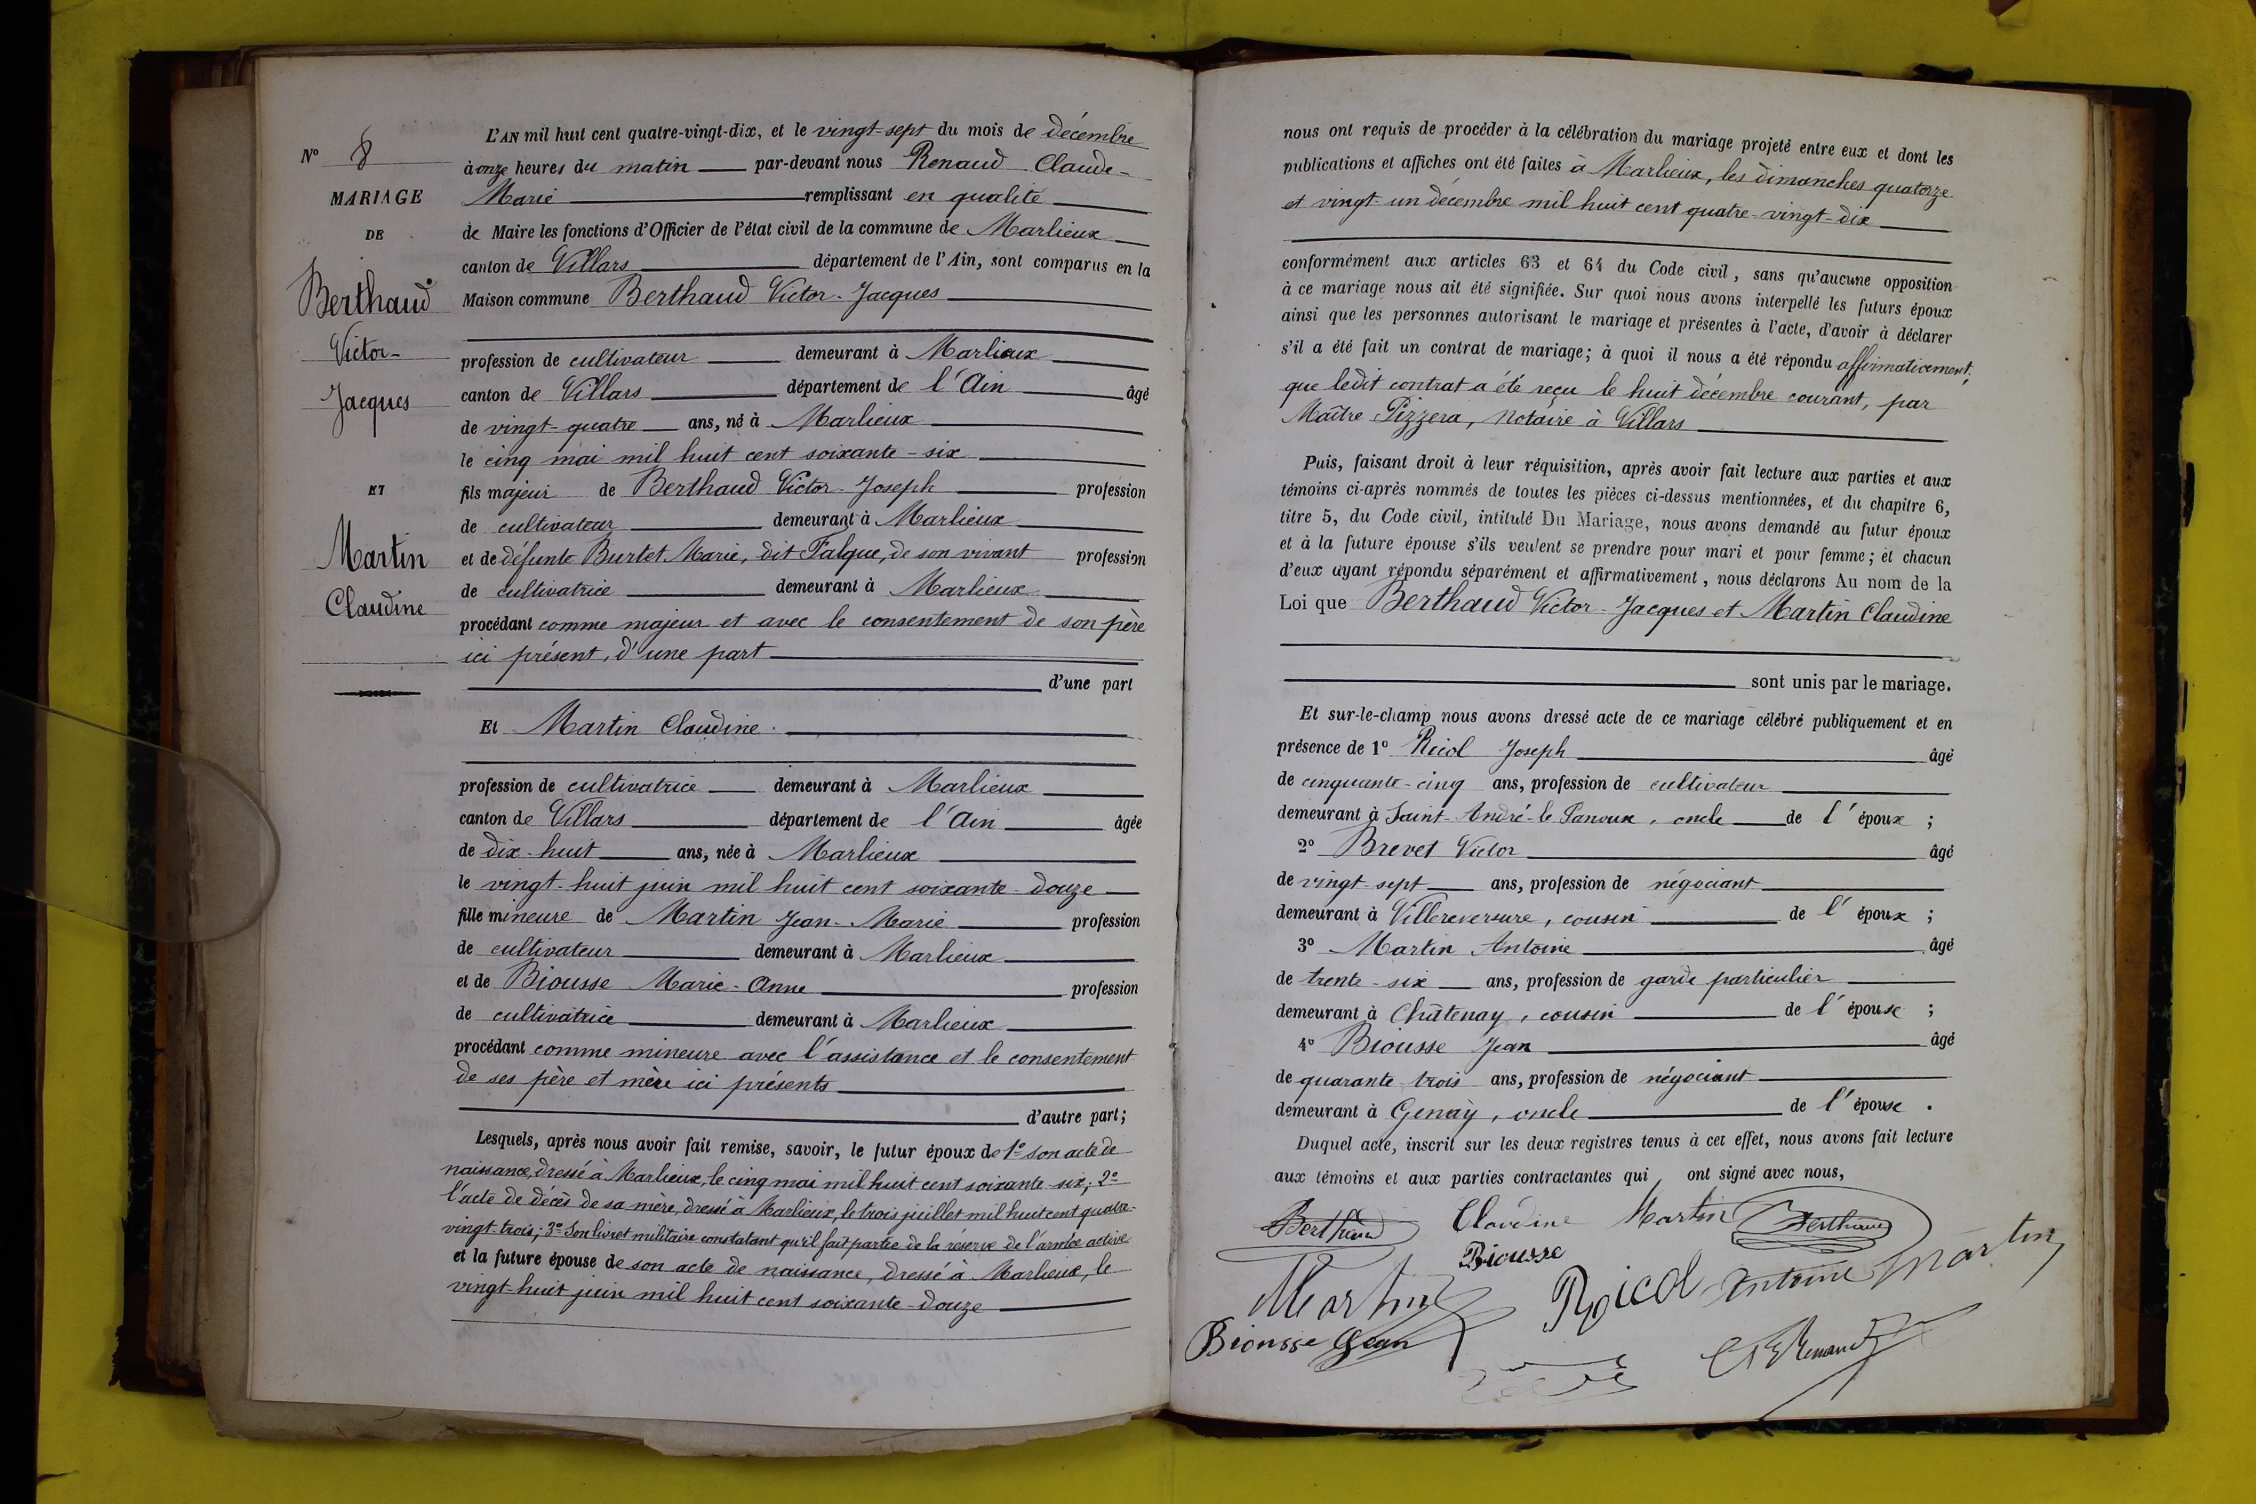 N° 8
MARIAGE
DE
Berthaud
Victor-
Jacques
ET
Martin
Claudine
L'AN mil huit cent quatre-vingt-dix, et le vingt-sept du mois de décembre
à onze heures du matin par-devant nous Renaud Claude-
Marie remplissant en qualité
de Maire les fonctions d'Officier de l'état civil de la commune de Marlieux
canton de Villars département de l'Ain, sont comparus en la
Maison commune Berthaud Victor-Jacques
profession de cultivateur demeurant à Marlieux
canton de Villars département de l'Ain âgé
de vingt-quatre ans, né à Marlieux
le cinq mai mil huit cent soixante-six
fils majeur de Berthaud Victor-Joseph profession
de cultivateur demeurant à Marlieux
et de défunte Burtet Marie, dit Falque, de son vivant profession
de cultivatrice demeurant à Marlieux
procédant comme majeur et avec le consentement de son père
ici présent, d'une part
d'une part
Et Martin Claudine
profession de cultivatrice demeurant à Marlieux
canton de Villars département de l'Ain âgée
de dix-huit ans, née à Marlieux
le vingt-huit juin mil huit cent soixante-douze
fille mineure de Martin Jean-Marie profession
de cultivateur demeurant à Marlieux
et de Biousse Marie-Anne profession
de cultivatrice demeurant à Marlieux
procédant comme mineure avec l'assistance et le consentement
de ses père et mère ici présents
d'autre part;
Lesquels, après nous avoir fait remise, savoir, le futur époux de 1° son acte de
naissance, dressé à Marlieux, le cinq mai mil huit cent soixante-six; 2°
l'acte de décès de sa mère, dressé à Marlieux, le trois juillet mil huit cent quatre-
vingt-trois; 3° Son livret militaire constatant qu'il fait partie de la réserve de l'armée active
et la future épouse de son acte de naissance, dressé à Marlieux, le
vingt-huit juin mil huit cent soixante-douze
nous ont requis de procéder à la célébration du mariage projeté entre eux et dont les
publications et affiches ont été faites à Marlieux, les dimanches quatorze
et vingt-un décembre mil huit cent quatre-vingt-dix
conformément aux articles 63 et 64 du Code civil, sans qu'aucune opposition
à ce mariage nous ait été signifiée. Sur quoi nous avons interpellé les futurs époux
ainsi que les personnes autorisant le mariage et présentes à l'acte, d'avoir à déclarer
s'il a été fait un contrat de mariage; à quoi il nous a été répondu affirmativement;
que ledit contrat a été reçu le huit décembre courant, par
Maître Pizzera, Notaire à Villars
Puis, faisant droit à leur réquisition, après avoir fait lecture aux parties et aux
témoins ci-après nommés de toutes les pièces ci-dessus mentionnées, et du chapitre 6,
titre 5, du Code civil, intitulé Du Mariage, nous avons demandé au futur époux
et à la future épouse s'ils veulent se prendre pour mari et pour femme; et chacun
d'eux ayant répondu séparément et affirmativement, nous déclarons Au nom de la
Loi que Berthaud Victor-Jacques et Martin Claudine
sont unis par le mariage.
Et sur-le-champ nous avons dressé acte de ce mariage célébré publiquement et en
présence de 1° Ricol Joseph âgé
de cinquante-cinq ans, profession de cultivateur
demeurant à Saint-André-le-Panoux, oncle de l'époux;
2° Brevet Victor âgé
de vingt-sept ans, profession de négociant
demeurant à Villereversure, cousin de l'époux;
3° Martin Antoine âgé
de trente-six ans, profession de garde particulier
demeurant à Châtenay, cousin de l'épouse;
4° Biousse Jean âgé
de quarante-trois ans, profession de négociant
demeurant à Genay, oncle de l'épouse.
Duquel acte, inscrit sur les deux registres tenus à cet effet, nous avons fait lecture
aux témoins et aux parties contractantes qui ont signé avec nous,
Berthaud Claudine Martin Berthaud
Biousse
Martin Ricol Antoine Martin
Biousse Jean Renaud